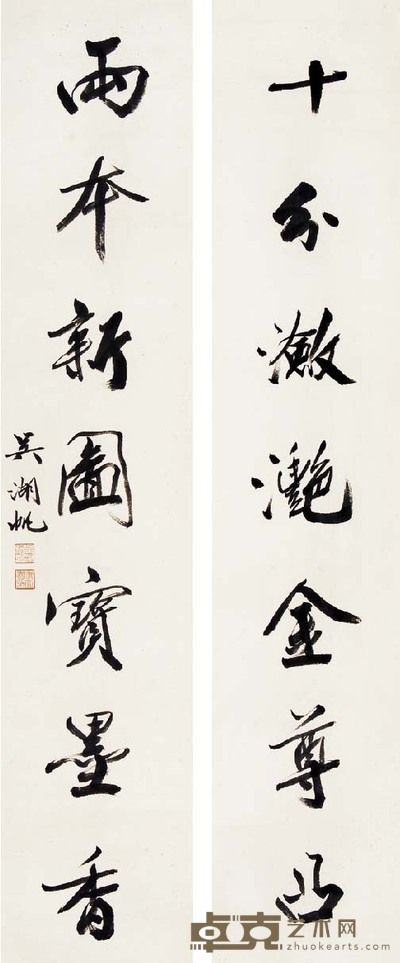 十分潋灔金尊凸
兩本新圖寶墨香
吳湖帆
卓克艺术网
zhuokearts.com